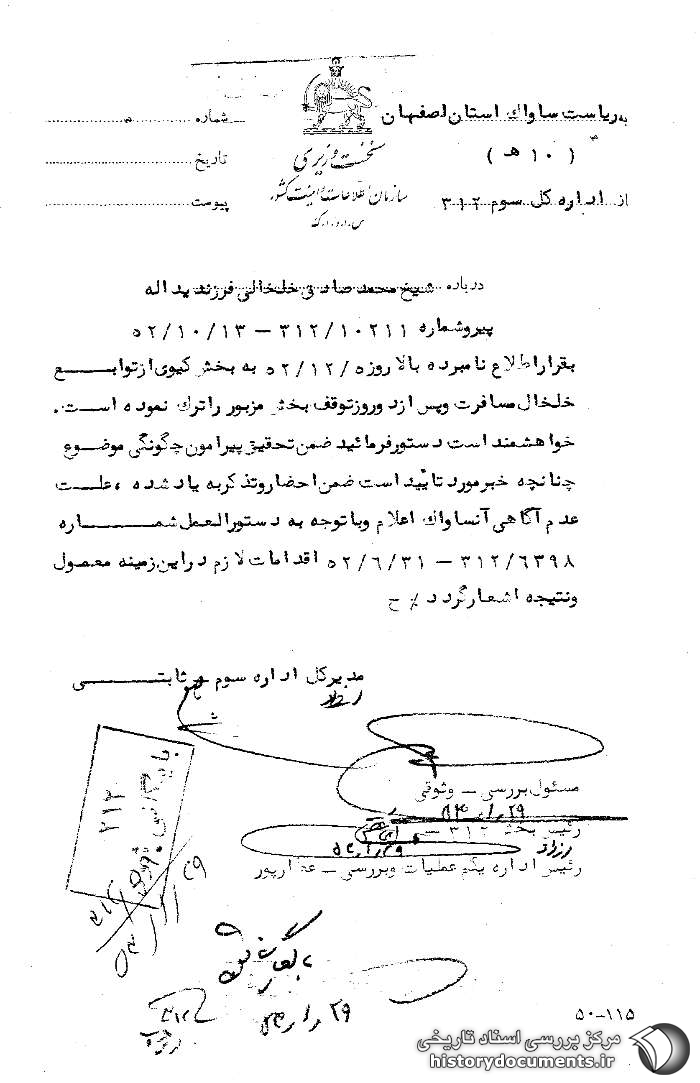 به ریاست ساواک استان اصفهان
( ۱۰ هـ )
از اداره کل سوم ۳۱۲
نخست وزیری
سازمان اطلاعات و امنیت کشور
س.ا.و.ا.ک
شماره
تاریخ
پیوست
درباره شیخ محمد صادق خلخالی فرزند یداله
پیرو شماره ۳۱۲/۱۰۲۱۱ – ۵۲/۱۰/۱۳
بقرار اطلاع نامبرده بالا روز ۵۲/۱۲/۵ به بخش کیوی از توابع
خلخال مسافرت و پس از دو روز توقف بخش مزبور را ترک نموده است.
خواهشمند است دستور فرمائید ضمن تحقیق پیرامون چگونگی موضوع
چنانچه خبر مورد تأیید است ضمن احضار و تذکر به یاد شده ، علت
عدم آگاهی آنساواک اعلام و با توجه به دستورالعمل شماره
۳۱۲/۶۳۹۸ – ۵۲/۶/۳۱ اقدامات لازم در این زمینه معمول
و نتیجه اشعار گردد ٪ ح
مدیرکل اداره سوم – ثابتی
مسئول بررسی – وثوقی
رئیس بخش ۳۱۲ –
رئیس اداره یکم عملیات و بررسی – عطارپور
بایگانی
۲۱۲
۵۰-۱۱۵
مرکز بررسی اسناد تاریخی
historydocuments.ir